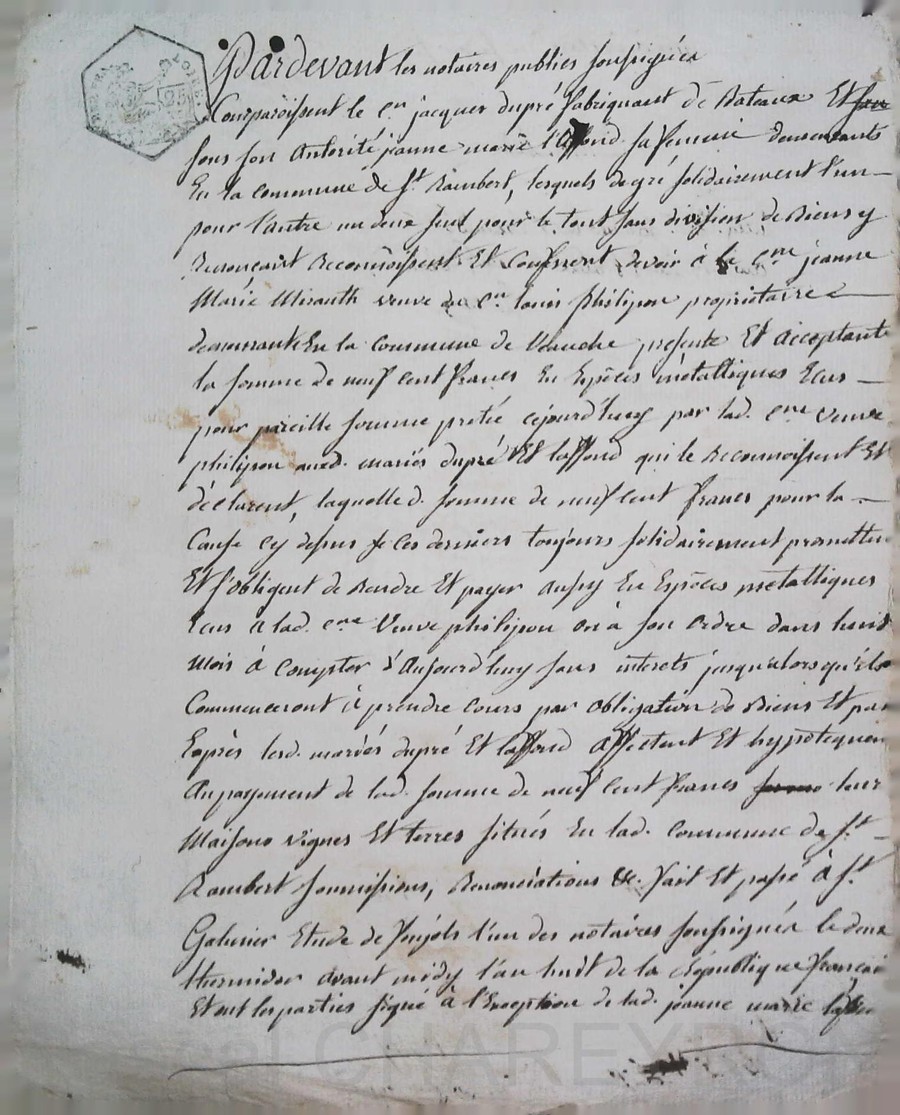 LOIRE
25
Pardevant les notaires publics soussignés
Comparoissent le c.en jacques dupré fabriquant de Bateaux Et
sous son Autorité jeanne marie laffond sa femme demeurants
En la commune de S.t Rambert, lesquels de gré solidairement l'un
pour l'autre un deux seul pour le tout sans division de Biens y
Renonçant Reconnoissent Et Confessent devoir à la c.ne jeanne
Marie Mirauth veuve du C.en louis philipon propriétaire
demeurante En la Commune de Veauche présente Et Acceptante
la somme de neuf cent francs En Espèces métalliques Ecus
pour pareille somme pretée cejourd'huy par lad. c.ne veuve
philipon aud. mariés dupré Et laffond qui le Reconnoissent Et
déclarent, laquelle d. somme de neuf cent francs pour la
Cause cy dessus ces derniers toujours solidairement promettent
Et s'obligent de Rendre Et payer Aussy En Espèces métalliques
Ecus a lad. c.ne Veuve philipon ou à son ordre dans huit
Mois à compter d'Aujourd'huy sans interets jusqu'alors qu'ils
Commenceront à prendre cours par obligation de Biens Et par
Exprès lesd. mariés dupré Et laffond Affectent Et hypotequent
Au payement de lad. somme de neuf Cent francs leur
Maisons vignes Et terres situés En lad. commune de S.t
Rambert soumissions, Renonciations &c. fait Et passé à S.t
Galmier Etude de l'un des notaires soussignés le deux
thermidor avant midy l'an huit de la République françai
Et ont les parties signé à l'Exception de lad. jeanne marie
CHAREYRON